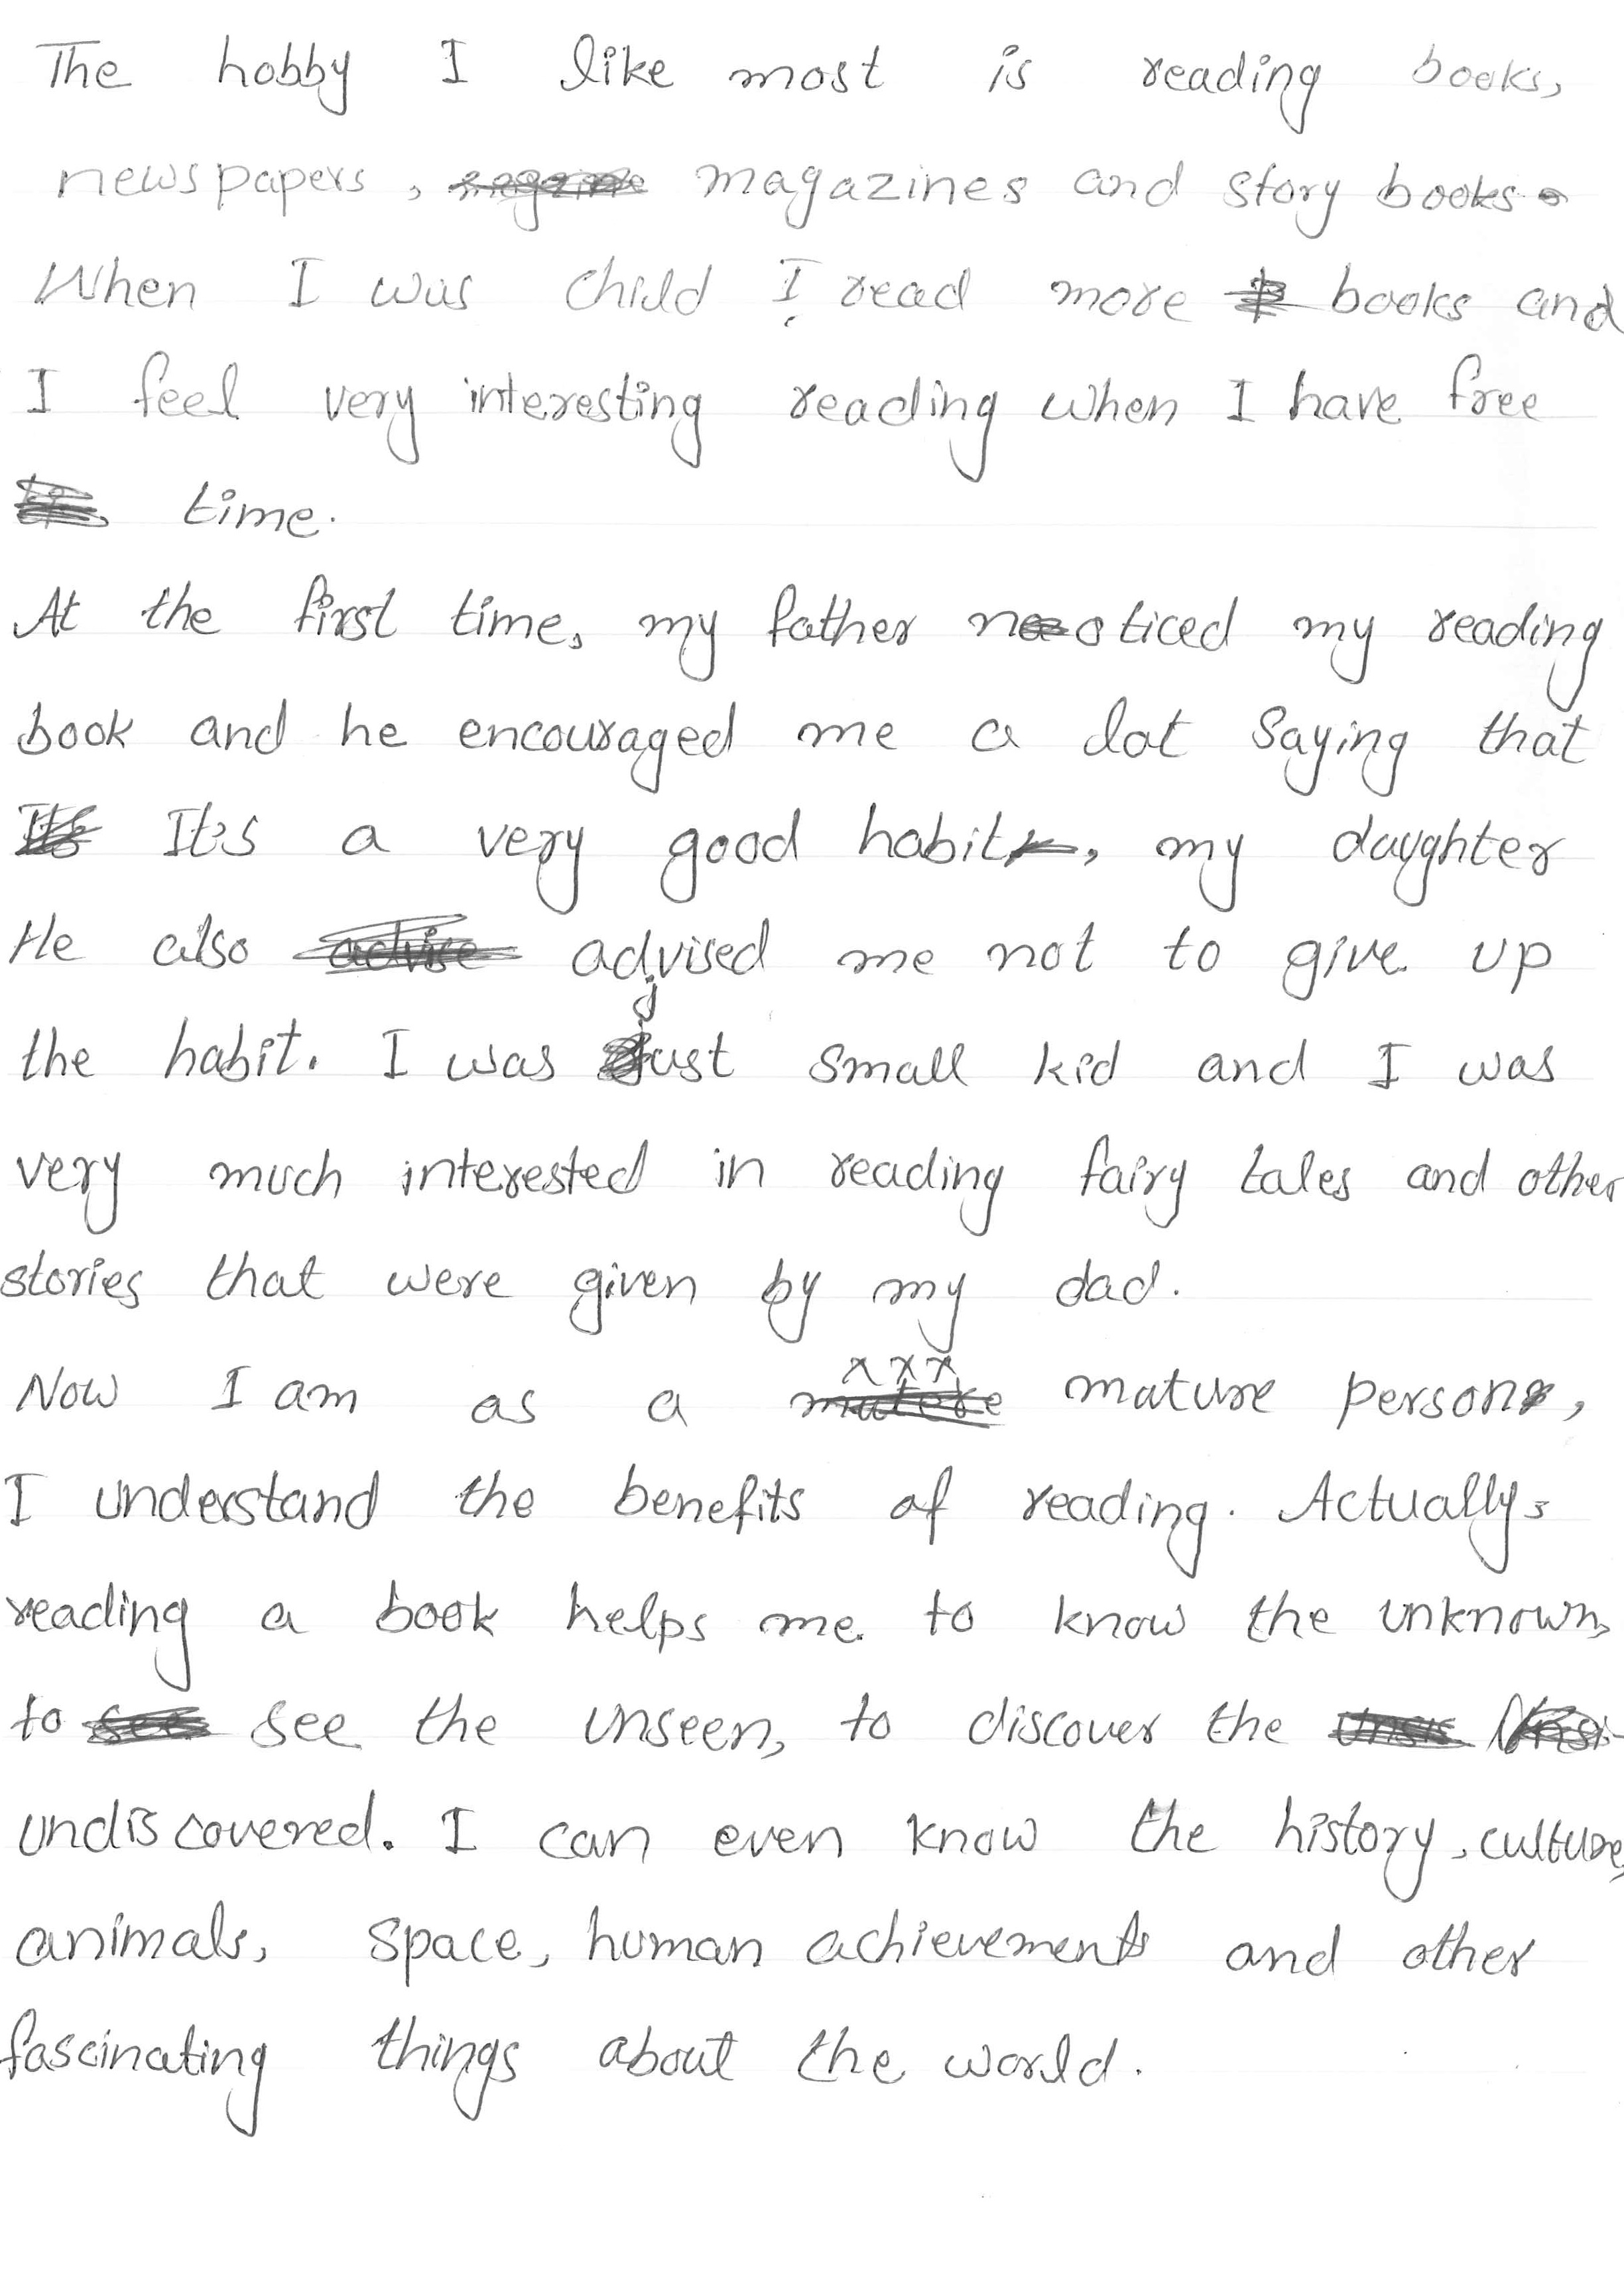 The hobby I like most is reading books,
newspapers, magazines and story books.
When I was child I read more books and
I feel very interesting reading when I have free
time.
At the first time, my father noticed my reading
book and he encouraged me a lot saying that
It's a very good habit, my daughter
He also advised me not to give up
the habit. I was just small kid and I was
very much interested in reading fairy tales and other
stories that were given by my dad.
Now I am as a mature person,
I understand the benefits of reading. Actually,
reading a book helps me to know the unknown,
to see the unseen, to discover the
undiscovered. I can even know the history, culture,
animals, space, human achievements and other
fascinating things about the world.